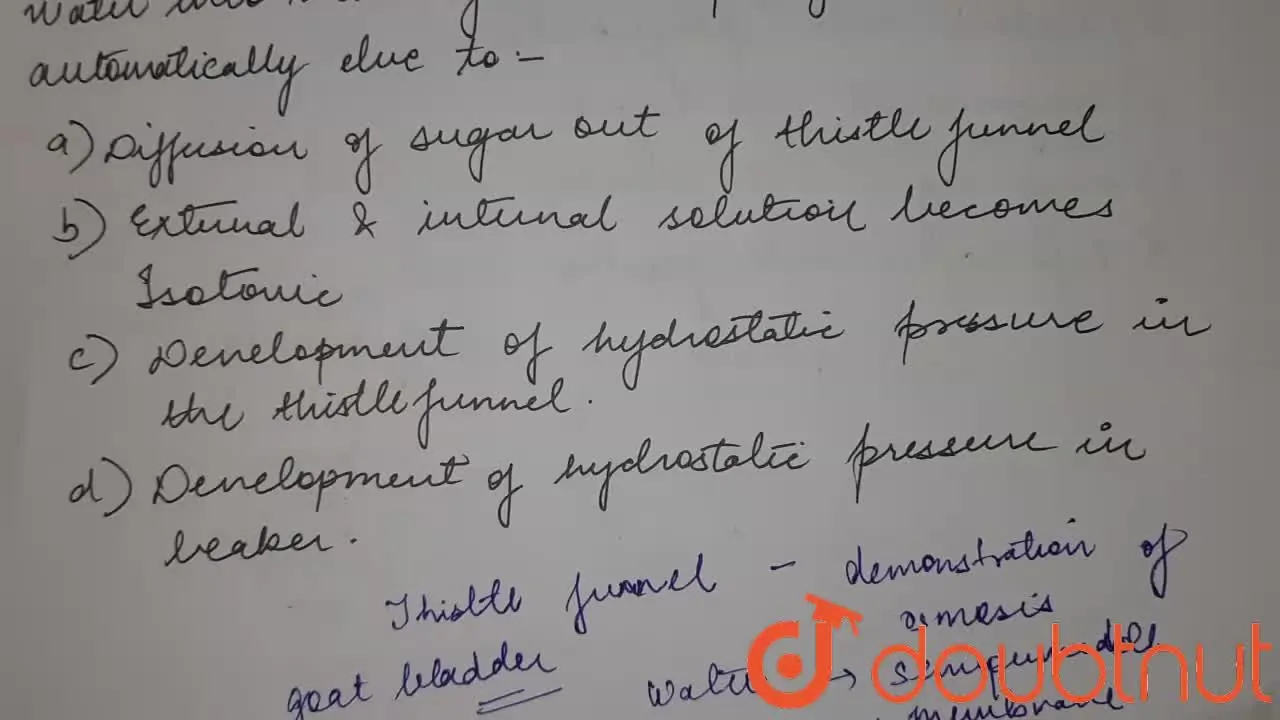 Water
automatically due to :-
a) Diffusion of sugar out of thistle funnel
b) External & internal solution becomes
Isotonic
c) Development of hydrostatic pressure in
the thistle funnel.
d) Development of hydrostatic pressure in
beaker.
Thistle funnel - demonstration of
osmosis
goat bladder water → semipermeable
membrane
doubtnut